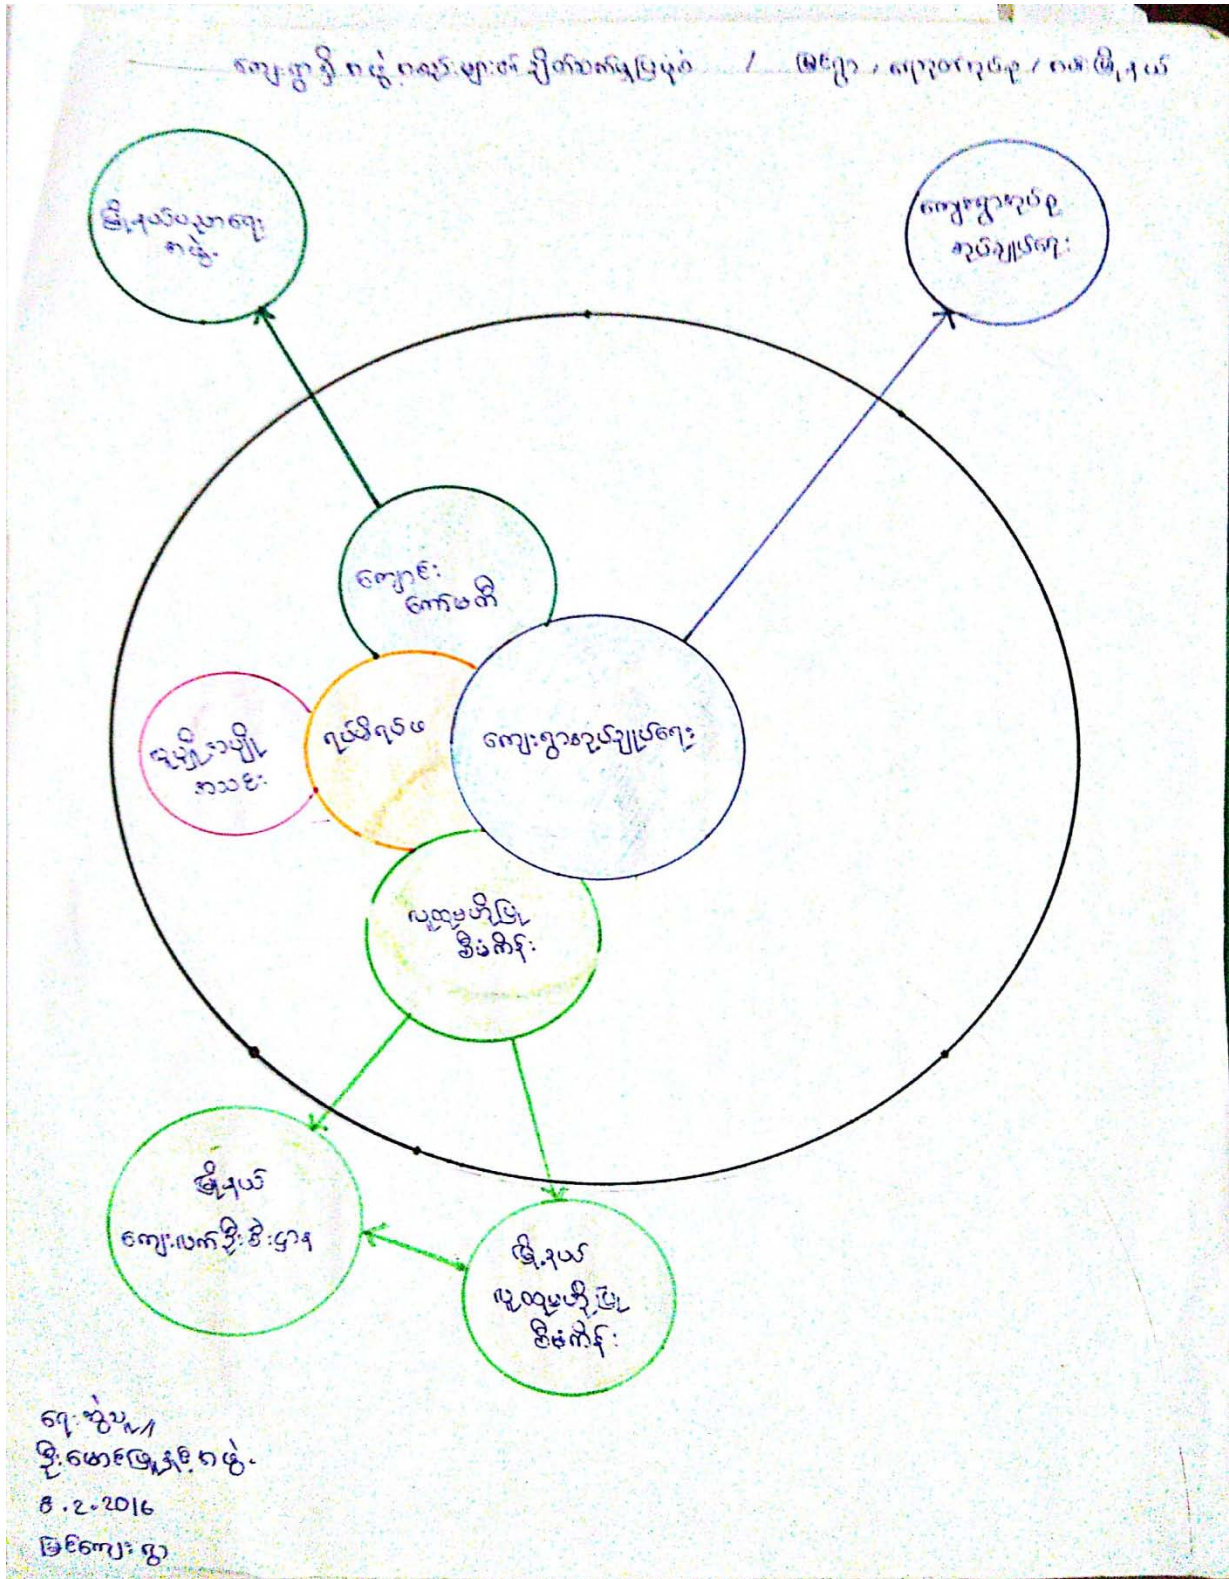 ကျေးရွာရှိ အဖွဲ့အစည်းများ၏ ချိတ်ဆက်မှုပြပုံစံ / မြင်ရွာ /
မြို့နယ်ပညာရေး
အဖွဲ့
ကျေးရွာအုပ်စု
အုပ်ချုပ်ရေး
ကျောင်း
ကော်မတီ
အသင်း
ရပ်မိရပ်ဖ
ကျေးရွာအုပ်ချုပ်ရေး
လူထုဗဟိုပြု
စီမံကိန်း
မြို့နယ်
ကျေးလက်ဦးစီးဌာန
မြို့နယ်
လူထုဗဟိုပြု
စီမံကိန်း
ရေးဆွဲသူ။
ဦးမောင်မြနှင့်အဖွဲ့
8.2.2016
မြင်ကျေးရွာ